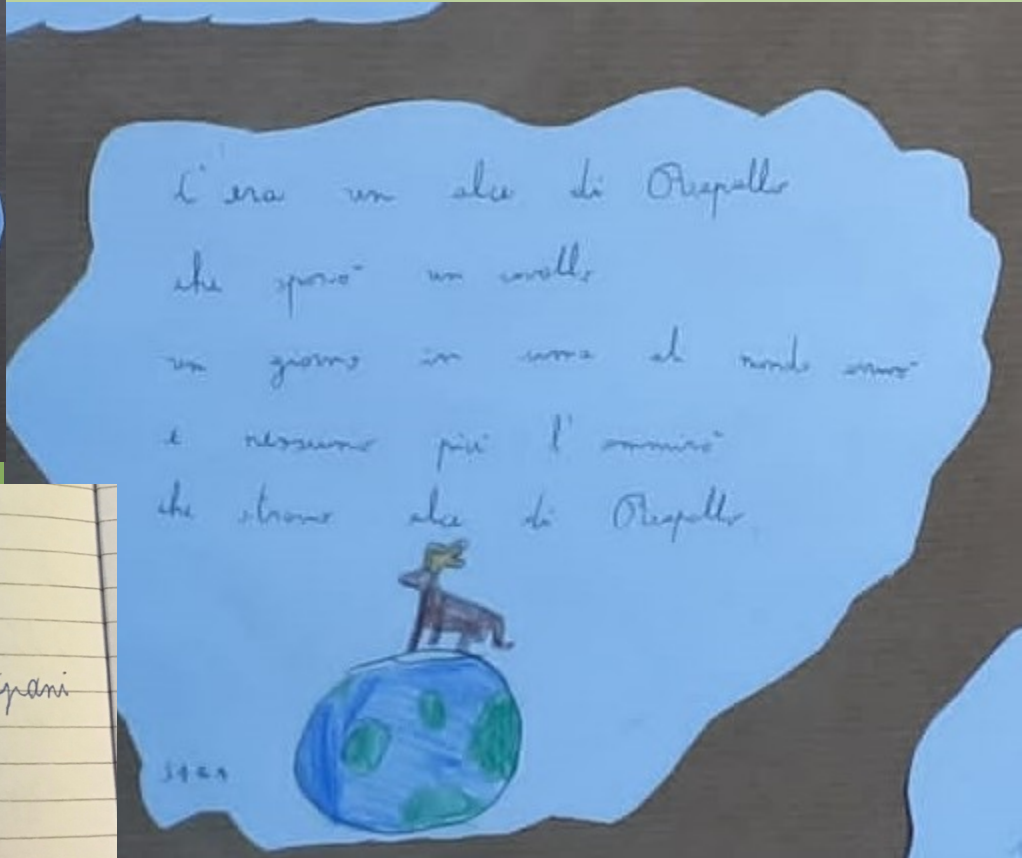 C'era un alce di Rapallo
che sposò un cavallo
un giorno in cima al mondo arrivò
e nessuno più l'ammirò
che strano alce di Rapallo